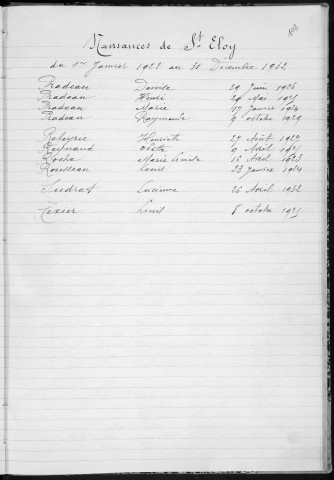 Naissances de St Eloy
du 1er Janvier 1923 au 31 Décembre 1932
Pradeau Denise 29 Juin 1926
Pradeau Henri 24 Mai
Pradeau Marie 17 Janvier 1924
Pradeau Raymonde 9 octobre 1929
Rebeyrie Henriette 27 Août 1927
Reynaud Odette 9 Avril
Roche Marie Louise 15 Avril 1923
Rousseau Louis 23 Janvier 1924
Sudrat Lucienne 26 Avril 1932
Texier 8 octobre 1925